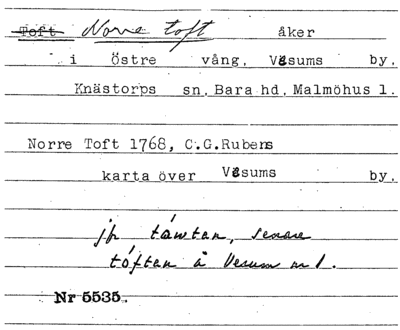 Toft Norre toft åker
i östre vång, Vesums by.
Knästorps sn. Bara hd. Malmöhus l.
Norre Toft 1768, C.G.Rubens
karta över Vesums by.
jfr táwtan, senare
tóften å Vesum nr 1.
Nr 5535.